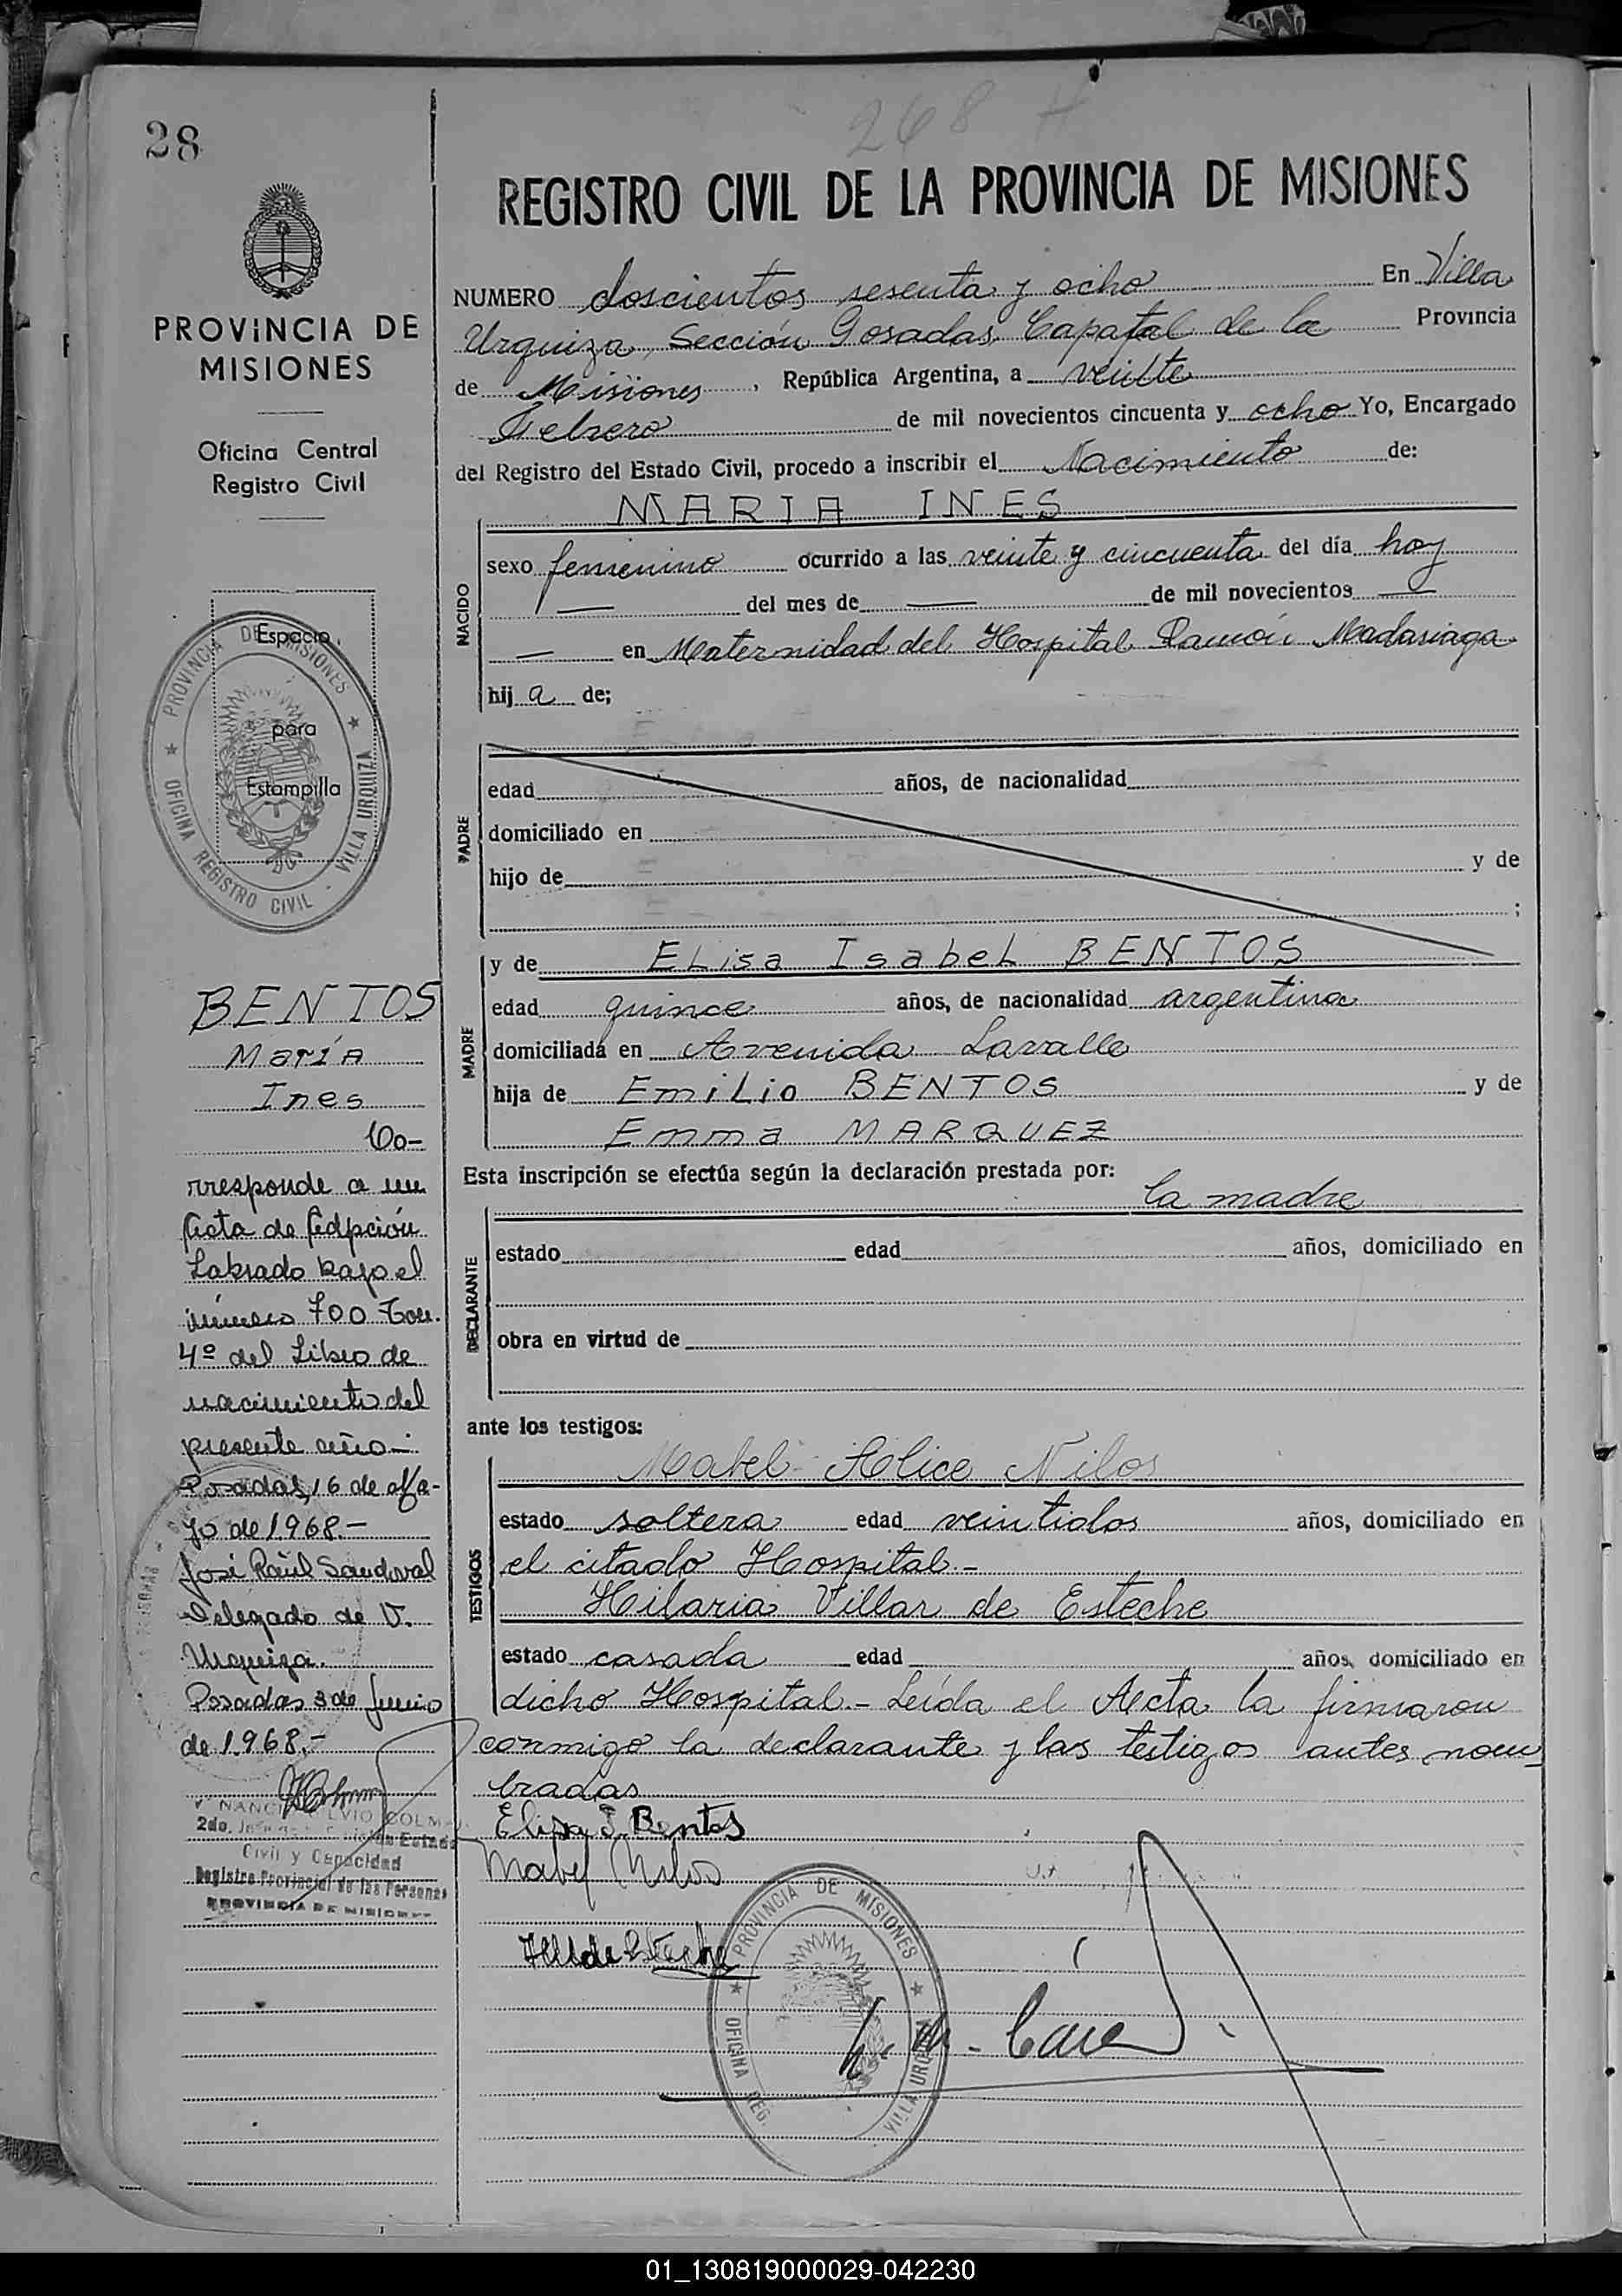 28
268 H
PROVINCIA DE
MISIONES
Oficina Central
Registro Civil
Espacio
para
Estampilla
PROVINCIA DE MISIONES
OFICINA REGISTRO CIVIL - VILLA URQUIZA
BENTOS
María
Ines
Co-
rresponde a un
Acta de Adpción
Labrado bajo el
número 700 Tom.
4º del Libro de
nacimiento del
presente año.-
Posadas, 16 de Ma-
yo de 1968.-
José Raúl Sandoval
Delegado de V.
Urquiza.
Posadas 3 de Junio
de 1968.-
Civil y Capacidad
Registro Provincial de las Personas
PROVINCIA DE MISIONES
REGISTRO CIVIL DE LA PROVINCIA DE MISIONES
NUMERO doscientos sesenta y ocho En Villa
Urquiza, Sección Posadas, Capatal de la Provincia
de Misiones, República Argentina, a veinte
Febrero de mil novecientos cincuenta y ocho Yo, Encargado
del Registro del Estado Civil, procedo a inscribir el Nacimiento de:
MARIA INES
NACIDO
sexo femenino ocurrido a las veinte y cincuenta del día hoy
— del mes de — de mil novecientos —
— en Maternidad del Hospital Ramón Madariaga
hij a de;
PADRE
edad años, de nacionalidad
domiciliado en
hijo de y de
;
MADRE
y de ELisa IsabeL BENTOS
edad quince años, de nacionalidad argentina
domiciliada en Avenida Lavalle
hija de EmiLio BENTOS y de
Emma MARQUEZ
Esta inscripción se efectúa según la declaración prestada por:
la madre
DECLARANTE
estado edad años, domiciliado en
obra en virtud de
ante los testigos:
Mabel Alice Nilos
TESTIGOS
estado soltera edad veintidos años, domiciliado en
el citado Hospital.-
Hilaria Villar de Esteche
estado casada edad años, domiciliado en
dicho Hospital.- Leída el Acta la firmaron
conmigo la declarante y las testigos antes nom
bradas
Elisa I. Bentos
Mabel Nilos
PROVINCIA DE MISIONES
OFICINA REG. VILLA URQUIZA
01_130819000029-042230